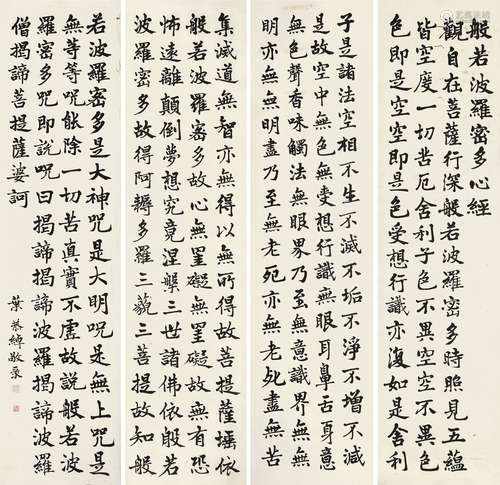 般若波羅密多心經
觀自在菩薩行深般若波羅密多時照見五蘊
皆空度一切苦厄舍利子色不異空空不異色
色即是空空即是色受想行識亦復如是舍利
子是諸法空相不生不滅不垢不淨不增不減
是故空中無色無受想行識無眼耳鼻舌身意
無色聲香味觸法無眼界乃至無意識界無無
明亦無無明盡乃至無老死亦無老死盡無苦
集滅道無智亦無得以無所得故菩提薩埵依
般若波羅密多故心無罣礙無罣礙故無有恐
怖遠離顛倒夢想究竟涅槃三世諸佛依般若
波羅密多故得阿耨多羅三藐三菩提故知般
若波羅密多是大神咒是大明咒是無上咒是
無等等咒能除一切苦真實不虛故說般若波
羅密多咒即說咒曰揭諦揭諦波羅揭諦波羅
僧揭諦菩提薩婆訶
葉恭綽敬彔